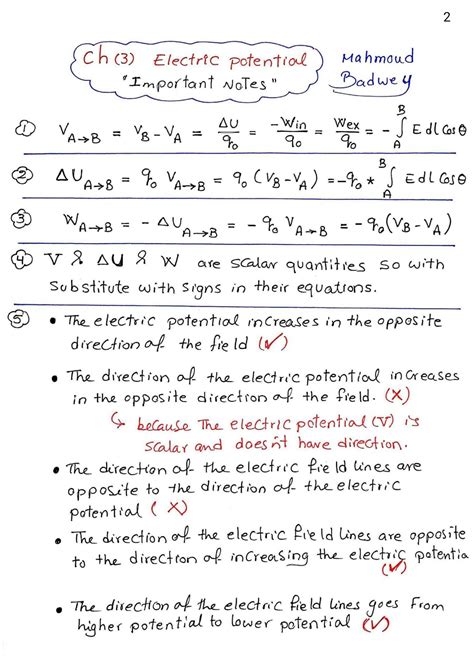 2
Ch (3) Electric potential
"Important Notes"
Mahmoud
Badwey
① V A→B = V_B - V_A = ΔU/q₀ = -Win/q₀ = Wex/q₀ = - ∫_A^B E dl Cos θ
② ΔU A→B = q₀ V A→B = q₀ (V_B - V_A) = -q₀ * ∫_A^B E dl Cos θ
③ W A→B = - ΔU A→B = - q₀ V A→B = - q₀ (V_B - V_A)
④ V & ΔU & W are scalar quantities so with
substitute with signs in their equations.
⑤ • The electric potential increases in the opposite
direction of the field (✓)
• The direction of the electric potential increases
in the opposite direction of the field. (X)
↳ because The electric potential (V) is
scalar and doesn't have direction.
• The direction of the electric field lines are
opposite to the direction of the electric
potential (X)
• The direction of the electric field lines are opposite
to the direction of increasing the electric potentia
(✓)
• The direction of the electric field lines goes from
higher potential to lower potential (✓)